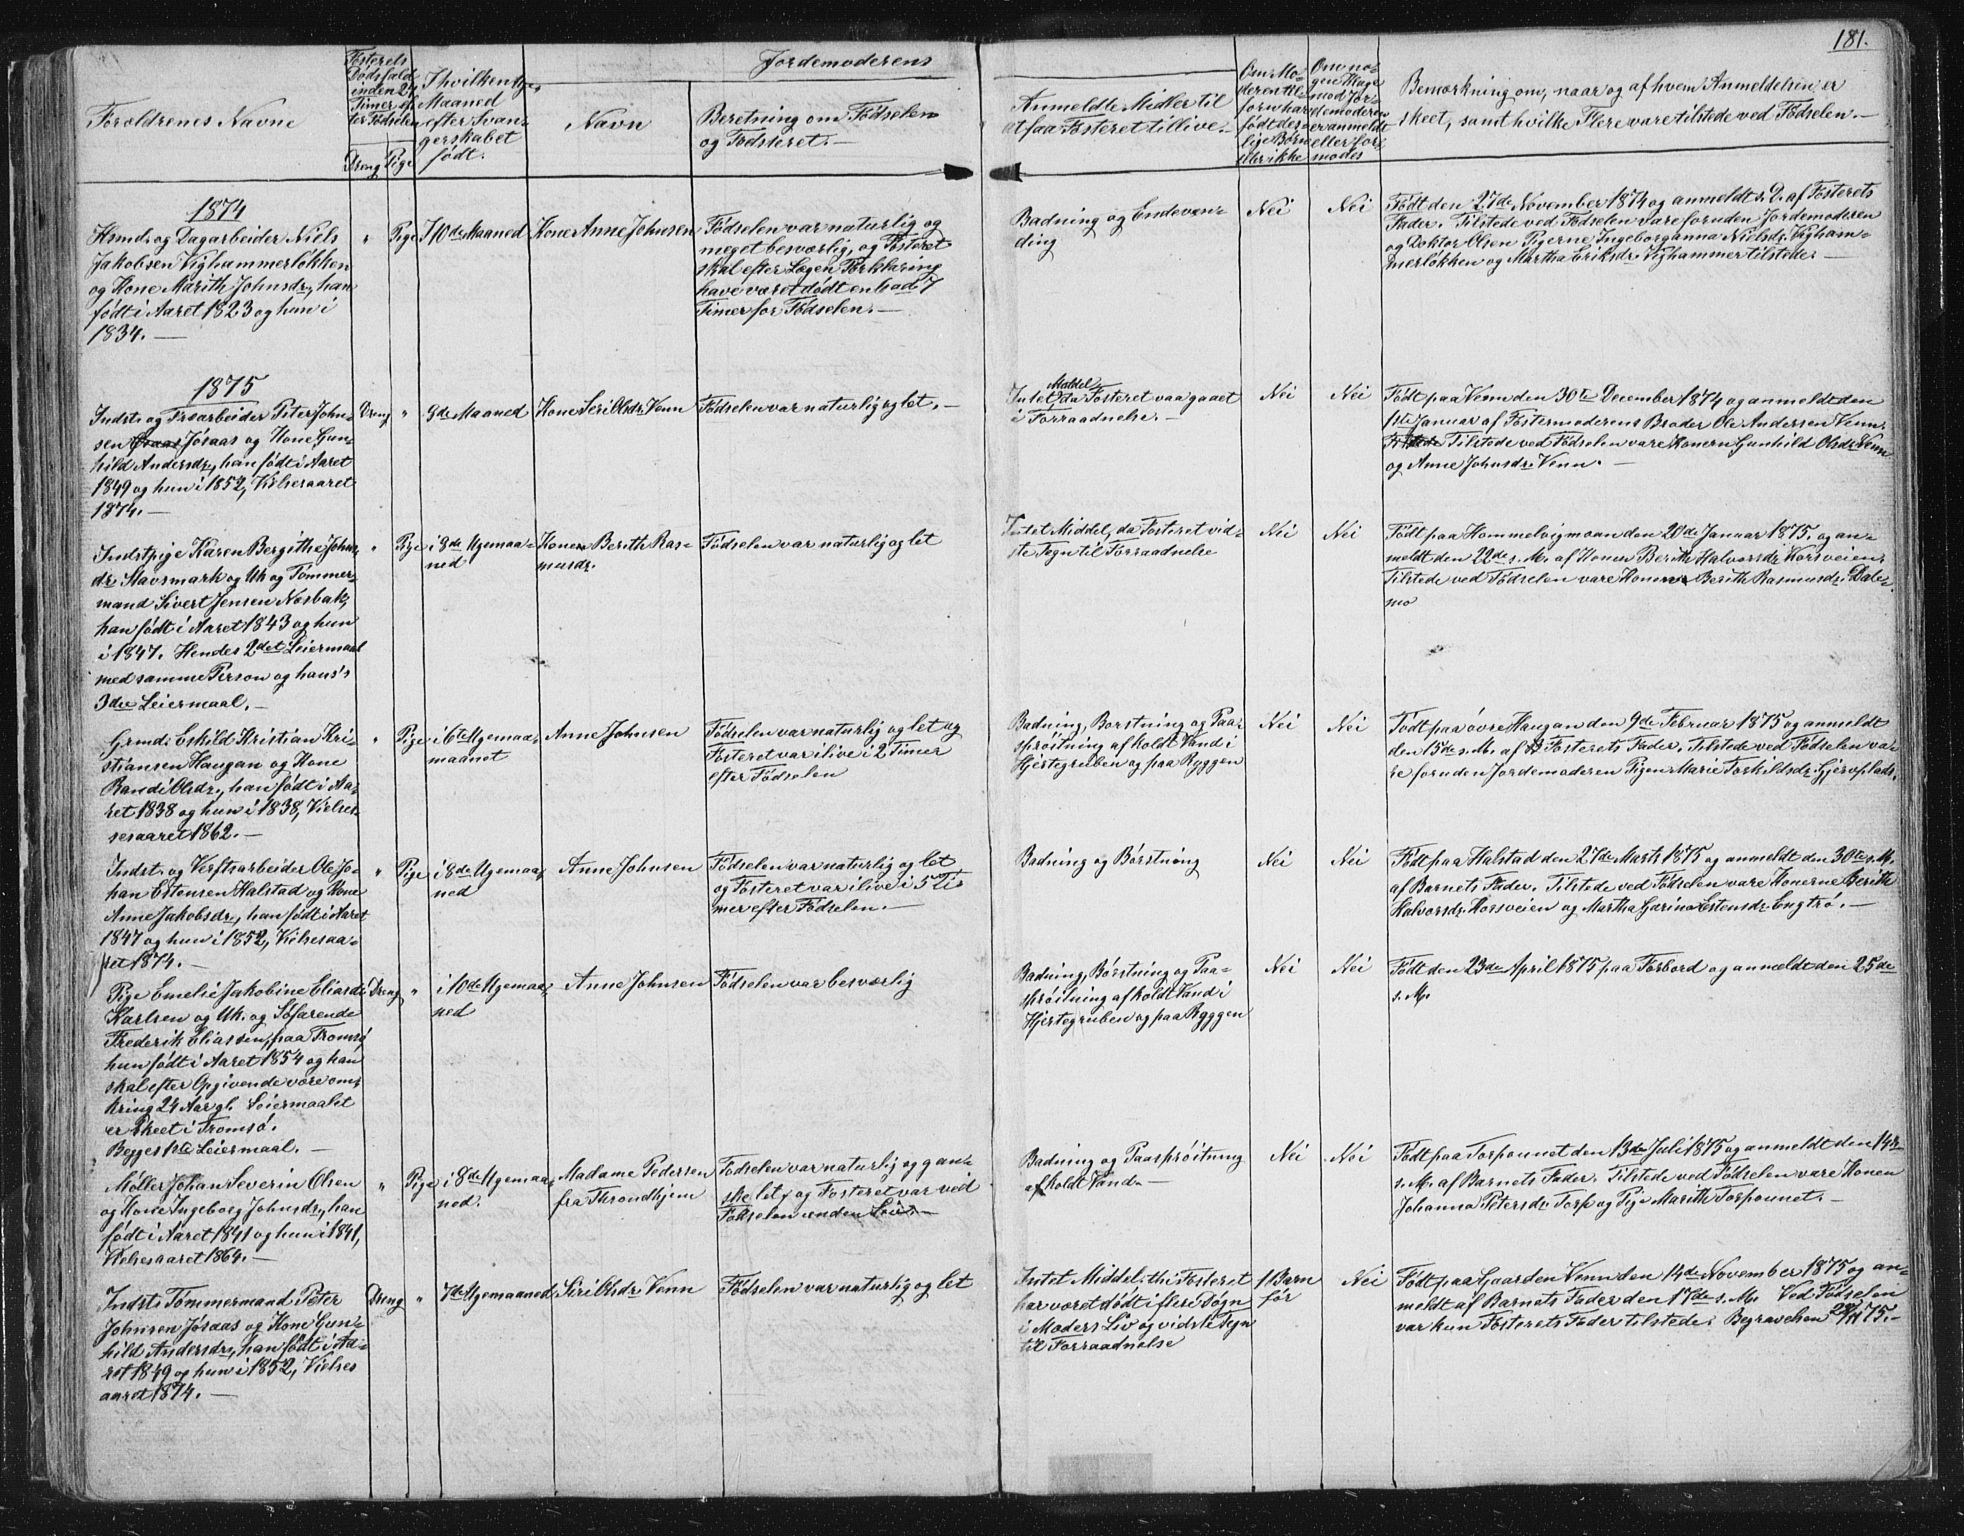 181.
Forældrenes Navne
Fosterets
Dødsfald
inden 24
Timer ef-
ter Fødselen
Dreng Pige
I hvilken Uge,
Maaned
efter Svan-
gerskabet
født.
Jordemoderens
Navn
Beretning om Fødselen
og Fødsteret.
Anmeldte Midler til
at faa Fosteret tillive.
Om Mo-
deren til-
forn har
født dø-
lige Børn
eller ikke
Om no-
gen Klage
mod Jor-
demoderen
er anmeldt
eller for-
modes
Bemærkning om, naar og af hvem Anmeldelsen er
skeet, samt hvilke Flere vare tilstede ved Fødselen.
1874
Hsmd. og Dagarbeider Niels
Jakobsen Vighammerløkken
og Kone Marith Johnsdr., han
født i Aaret 1823 og hun i
1834.
" Pige
I 10de Maaned
Kone Anne Johnsen
Fødselen var naturlig og
meget besværlig, og Fosteret
skal efter Lægen Forklaring
have været dødt en halv 7
Timer for Fødselen.
Badning og Endeven-
ding
Nei
Nei
Født den 27de November 1874 og anmeldt s. D. af Fosterets
Fader. Tilstede ved Fødselen vare foruden Jordemoderen
og Doktor Olsen Pigerne Ingeborganna Nielsdr. Vigham-
merløkken og Martha Eriksdr. Vighammer tilstede.
1875
Indst. og Træarbeider Peter John-
sen Jøsaas og Kone Gun-
hild Andersdr., han født i Aaret
1849 og hun i 1852, Vielsesaaret
1874.
Dreng "
9de Maaned
Kone Siri Olsdr. Venn
Fødselen var naturlig og let.
Middel
Intet, da Fosteret var gaaet
i Forraadnelse.
Nei
Nei
Født paa Venn den 30te December 1874 og anmeldt den
1ste Januar af Fostermoderens Broder Ole Andersen Venn.
Tilstede ved Fødselen vare Konern Gunhild Olsdr. Venn
og Anne Johnsdr. Venn.
Indstpige Karen Bergithe Johns-
dr. Mavsmark og Uk. og Tømmer-
mand Sivert Jensen Næsbak,
han født i Aaret 1843 og hun
i 1847. Hendes 2det Leiermaal
med samme Person og hans's
3die Leiermaal.
" Pige
i 8de Ugemaa-
ned
Konen Berith Ras-
musdr.
Fødselen var naturlig og let
Intet Middel, da Fosteret vid-
ste Tegn til Forraadnelse
Nei
Nei
Født paa Hommelvigmoan den 20de Januar 1875, og an-
meldt den 22de s. M. af Konen Berith Halvorsdr. Korsveien.
Tilstede ved Fødselen vare Konen Berith Rasmusdr. Dale-
mo
Grmd. Eskild Kristian Kri-
stiansen Haugan og Kone
Randi Olsdr., han født i Aa-
ret 1838 og hun i 1838, Vielses-
sesaaret 1862.
" Pige
i 6te Ugemaa-
maanet
Anne Johnsen
Fødselen var naturlig og let og
Fosteret var ilive i 2 Timer
efter Fødselen
Badning, Børstning og Paa-
sprøitning af koldt Vand i
Hjertegruben og paa Ryggen
Nei
Nei
Født paa øvre Haugan den 9de Februar 1875 og anmeldt
den 15de s. M. af Fosterets Fader. Tilstede ved Fødselen va-
re foruden Jordemoderen Pigen Marie Toskildsdr. Gjervplads.
Indst. og Verftsarbeider Ole Jo-
han Estensen Halstad og Kone
Anne Jakobsdr., han født i Aaret
1847 og hun i 1852, Vielsesaa-
ret 1874.
" Pige
i 8de Ugemaa-
ned
Anne Johnsen
Fødselen var naturlig og let
og Fosteret var ilive i 5 Ti-
mer efter Fødselen.
Badning og Børstning
Nei
Nei
Født paa Halstad den 27de Marts 1875 og anmeldt den 30te s. M.
af Barnets Fader. Tilstede ved Fødselen vare Konerne Berith
Halvorsdr. Korsveien og Martha Garina Estensdr. Engtrø.
Pige Emelie Jakobine Eliasdr.
Karlsen og Uk. og Søfarende
Frederik Eliassen, paa Tromsø,
hun født i Aaret 1854 og han
skal efter Opgivende være om-
kring 24 Aar gl. Leiermaalet
er skeet i Tromsø.
Begges 1ste Leiermaal.
Dreng "
i 10de Ugemaa-
ned
Anne Johnsen
Fødselen var besværlig
Badning, Børstning og Paa-
sprøitning af koldt Vand i
Hjertegruben og paa Rygggen
Nei
Nei
Født den 23de April 1875 paa Forbord og anmeldt den 25de
s. M.
Møller Johan Severin Olsen
og Kone Ingeborg Johnsdr., han
født i Aaret 1841 og hun i 1841,
Vielsesaaret 1864.
" Pige
i 8de Ugemaa-
ned.
Madame Pedersen
fra Throndhjem
Fødselen var naturlig og gan-
ske let, og Fosteret var ved
Fødselen uden Liv.
Badning og Paasprøitning
af koldt Vand.
Nei
Nei
Født paa Torpounet den 13de Juli 1875 og anmeldt den 14de
s. M. af Barnets Fader. Tilstede ved Fødselen vare Konen
Johanna Petersdr. Torp og Pige Marith Torpounet.
Indst. Tømmermand Peter
Johnsen Jøsaas og Kone Gun-
hild Andersdr., han født i Aa-
ret 1849 og hun i 1852, Vielses
aaret 1874.
Dreng "
7de Ugemaaned
Siri Olsdr. Venn
Fødselen var naturlig og let
Intet Middel, thi Fosteret
har været dødt i flere Døgn
i Moders Liv og vidste Tegn
til Forraadnelse
1 Barn
før
Nei
Født paa Gaarden Venn den 14de November 1875 og an-
meldt af Barnets Fader den 17de s. M. Ved Fødselen
var kun Fosterets Fader tilstede. Begravelsen 24/11 75.